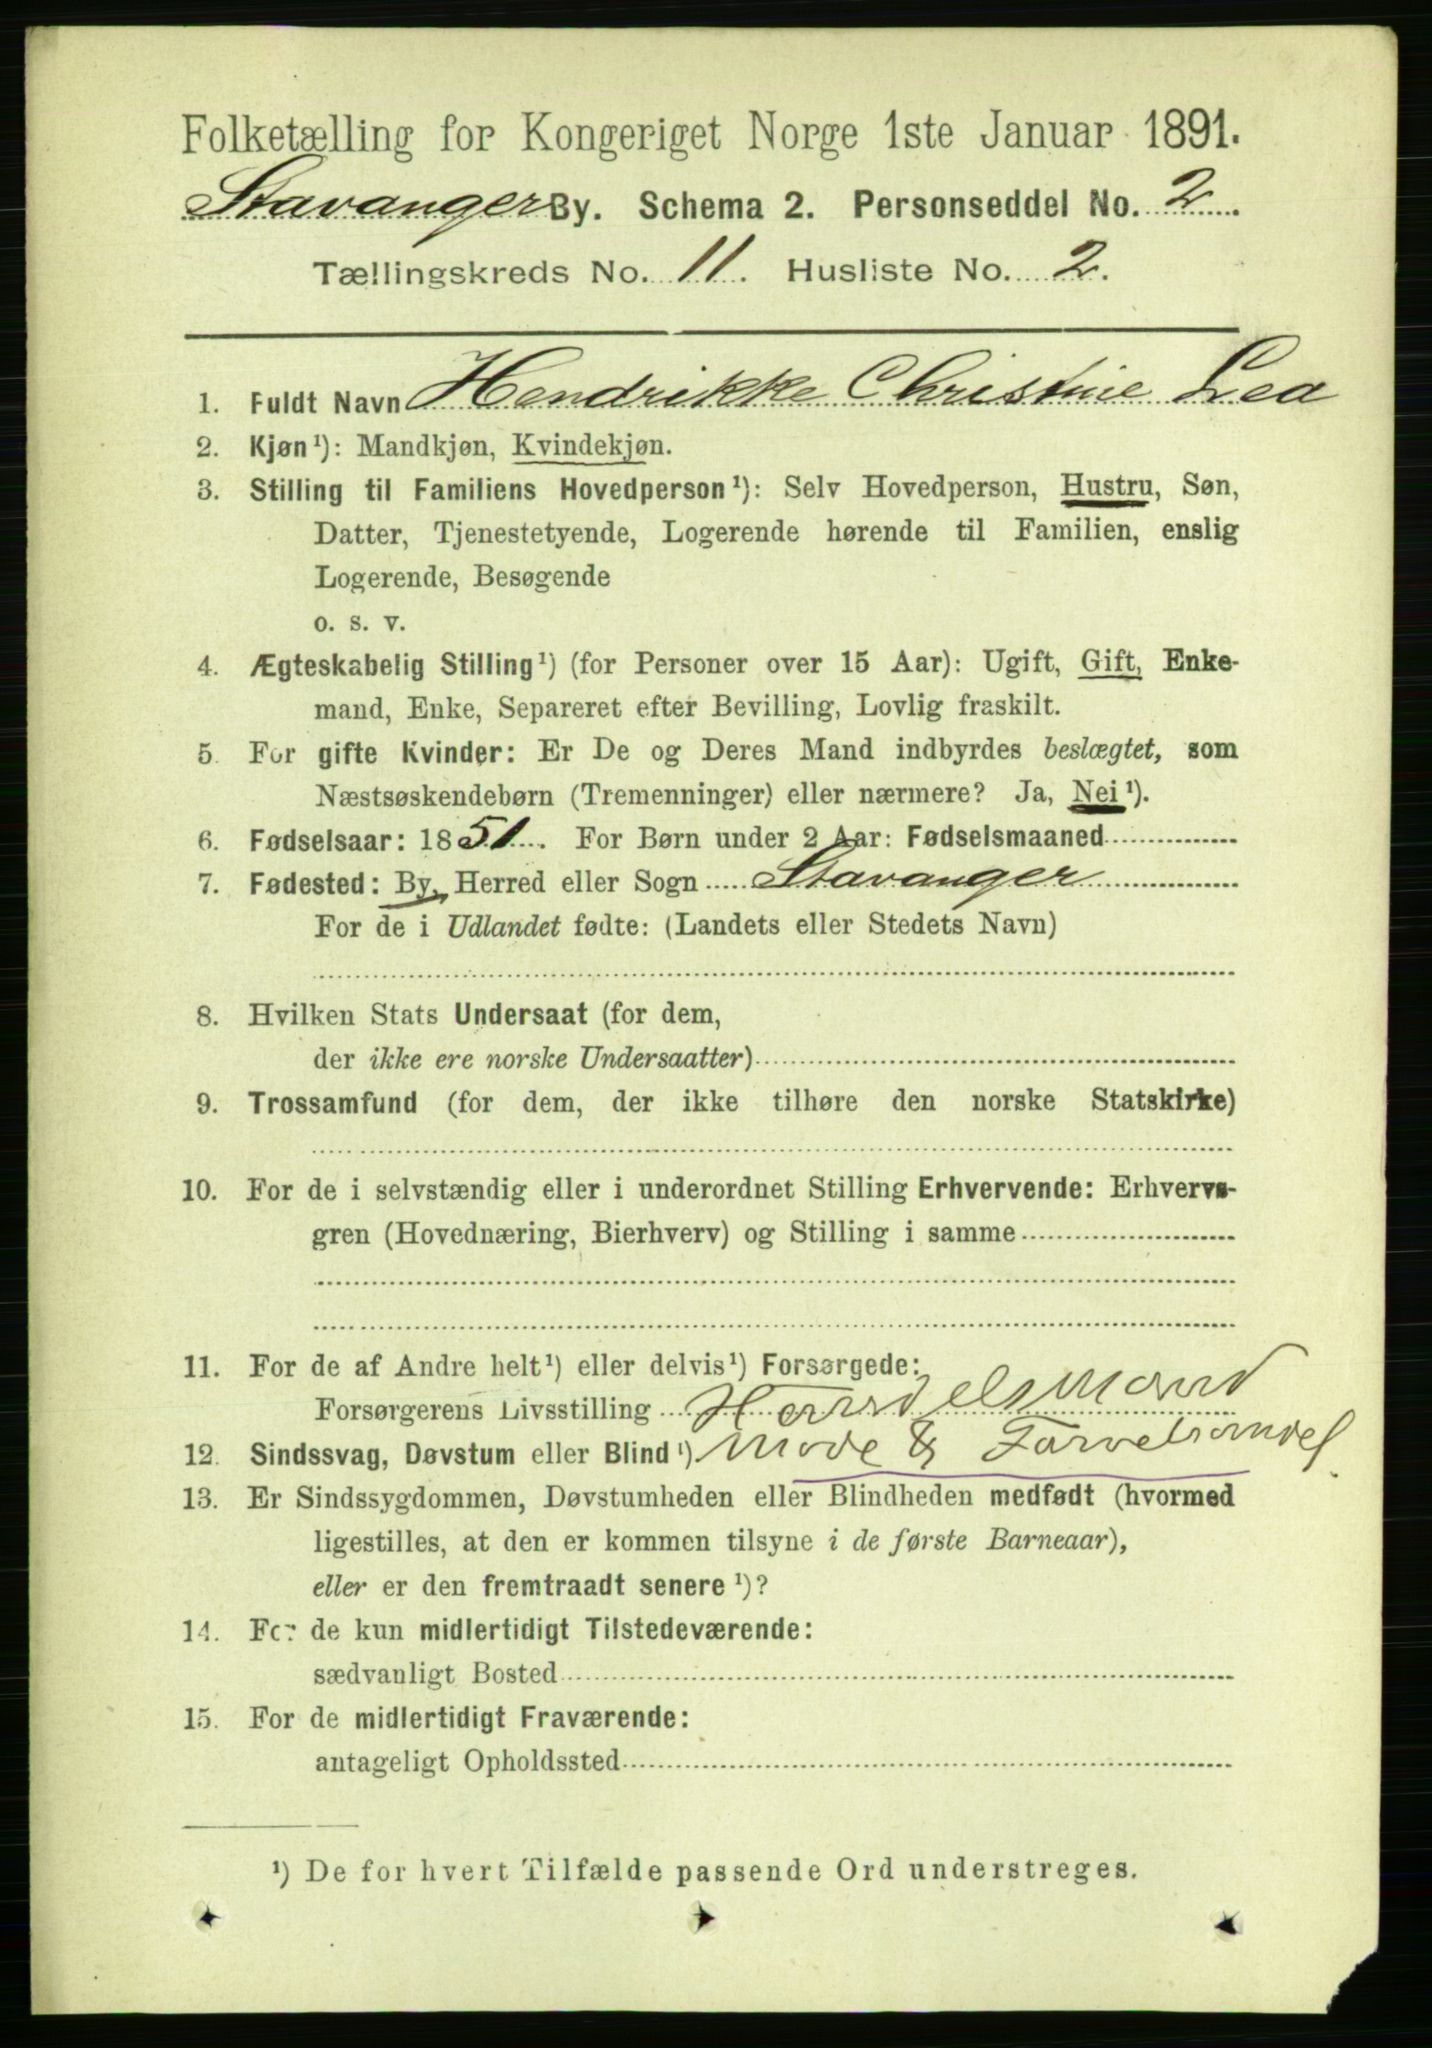 Folketælling for Kongeriget Norge 1ste Januar 1891.
Stavanger By. Schema 2. Personseddel No. 2
Tællingskreds No. 11. Husliste No. 2.
1. Fuldt Navn Hendrikke Christine Lea
2. Kjøn¹): Mandkjøn, Kvindekjøn.
3. Stilling til Familiens Hovedperson¹): Selv Hovedperson, Hustru, Søn,
Datter, Tjenestetyende, Logerende hørende til Familien, enslig
Logerende, Besøgende
o. s. v.
4. Ægteskabelig Stilling¹) (for Personer over 15 Aar): Ugift, Gift, Enke-
mand, Enke, Separeret efter Bevilling, Lovlig fraskilt.
5. For gifte Kvinder: Er De og Deres Mand indbyrdes beslægtet, som
Næstsøskendebørn (Tremenninger) eller nærmere? Ja, Nei¹).
6. Fødselsaar: 1851. For Børn under 2 Aar: Fødselsmaaned
7. Fødested: By, Herred eller Sogn Stavanger
For de i Udlandet fødte: (Landets eller Stedets Navn)
8. Hvilken Stats Undersaat (for dem,
der ikke ere norske Undersaatter)
9. Trossamfund (for dem, der ikke tilhøre den norske Statskirke)
10. For de i selvstændig eller i underordnet Stilling Erhvervende: Erhvervs-
gren (Hovednæring, Bierhverv) og Stilling i samme
11. For de af Andre helt¹) eller delvis¹) Forsørgede:
Forsørgerens Livsstilling Handelsmand
12. Sindssvag, Døvstum eller Blind¹) Mode & Farvehandel
13. Er Sindssygdommen, Døvstumheden eller Blindheden medfødt (hvormed
ligestilles, at den er kommen tilsyne i de første Barneaar),
eller er den fremtraadt senere¹)?
14. For de kun midlertidigt Tilstedeværende:
sædvanligt Bosted
15. For de midlertidigt Fraværende:
antageligt Opholdssted
¹) De for hvert Tilfælde passende Ord understreges.